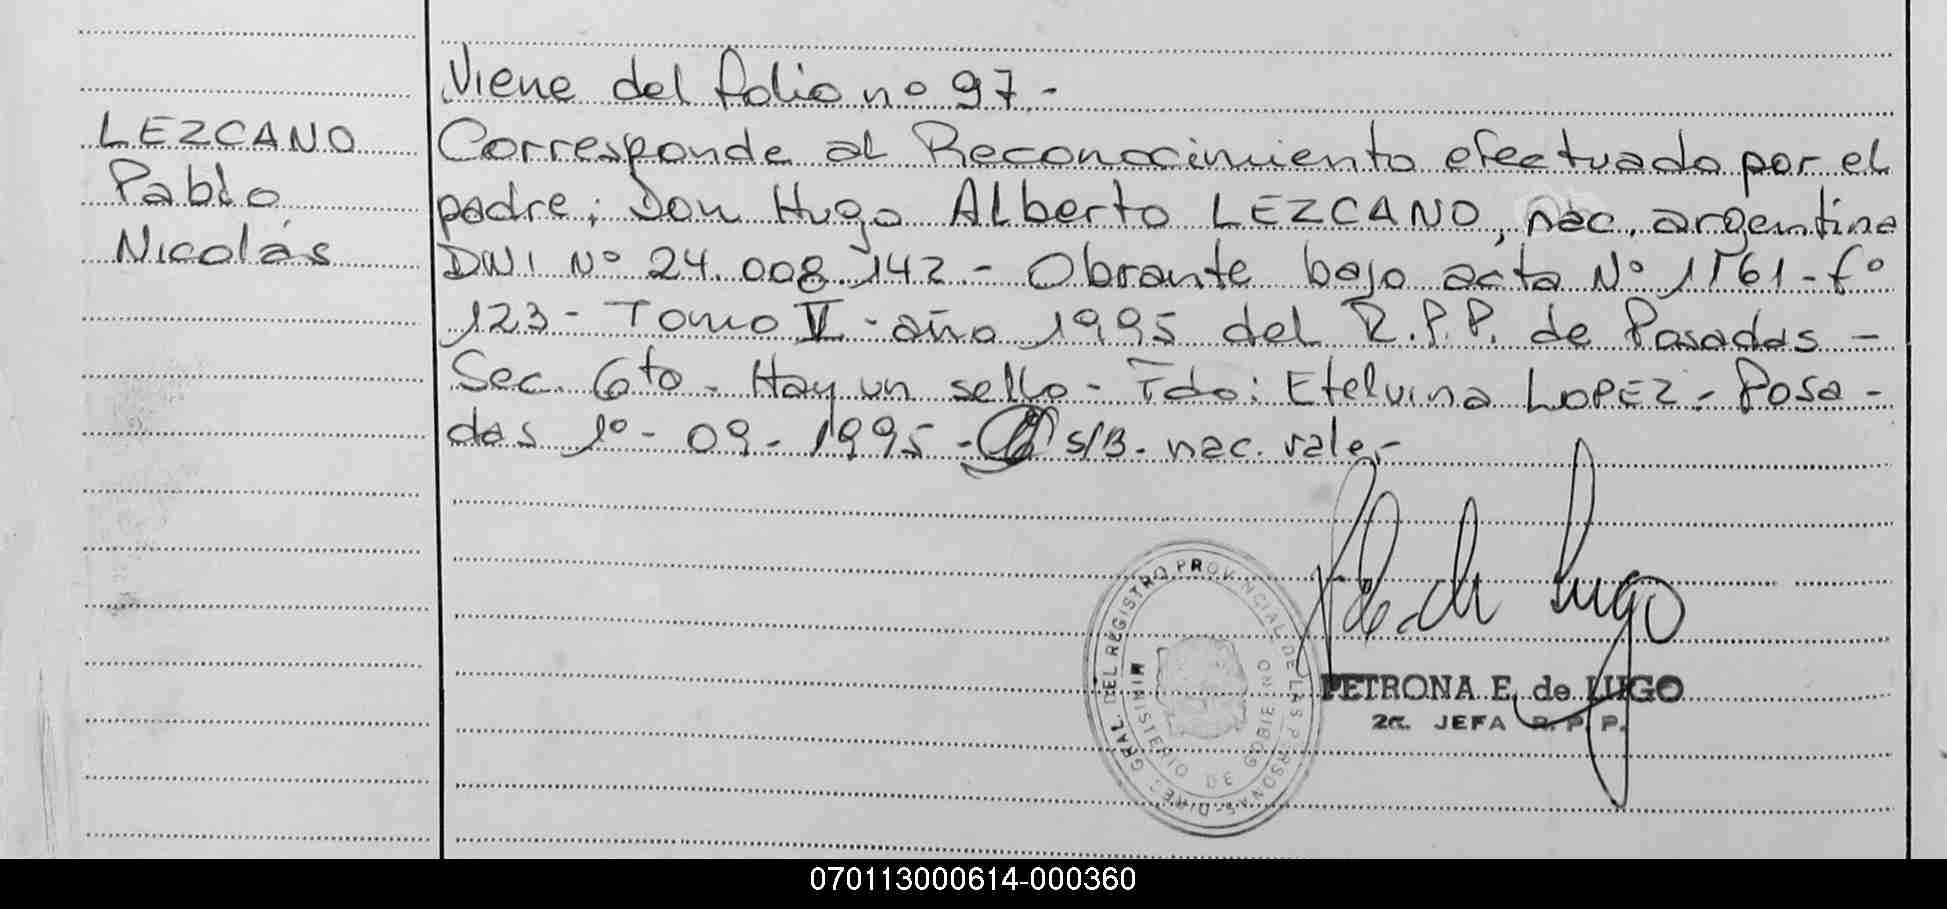 Viene del folio nº 97 -
LEZCANO
Pablo
Nicolás
Corresponde al Reconocimiento efectuado por el
padre; Don Hugo Alberto LEZCANO, nac. argentina
DNI Nº 24.008.142 - Obrante bajo acta Nº 1161 - fº
123 - Tomo V - año 1995 del R.P.P. de Posadas -
Sec. 6to - Hay un sello - Fdo: Etelvina LOPEZ - Posa-
das 1º - 09 - 1995 - S/B. nac. vale -
P. de Lugo
PETRONA E. de LUGO
2a. JEFA R. P. P.
DIREC. GRAL. DEL REGISTRO PROVINCIAL DE LAS PERSONAS
MINISTERIO DE GOBIERNO
070113000614-000360